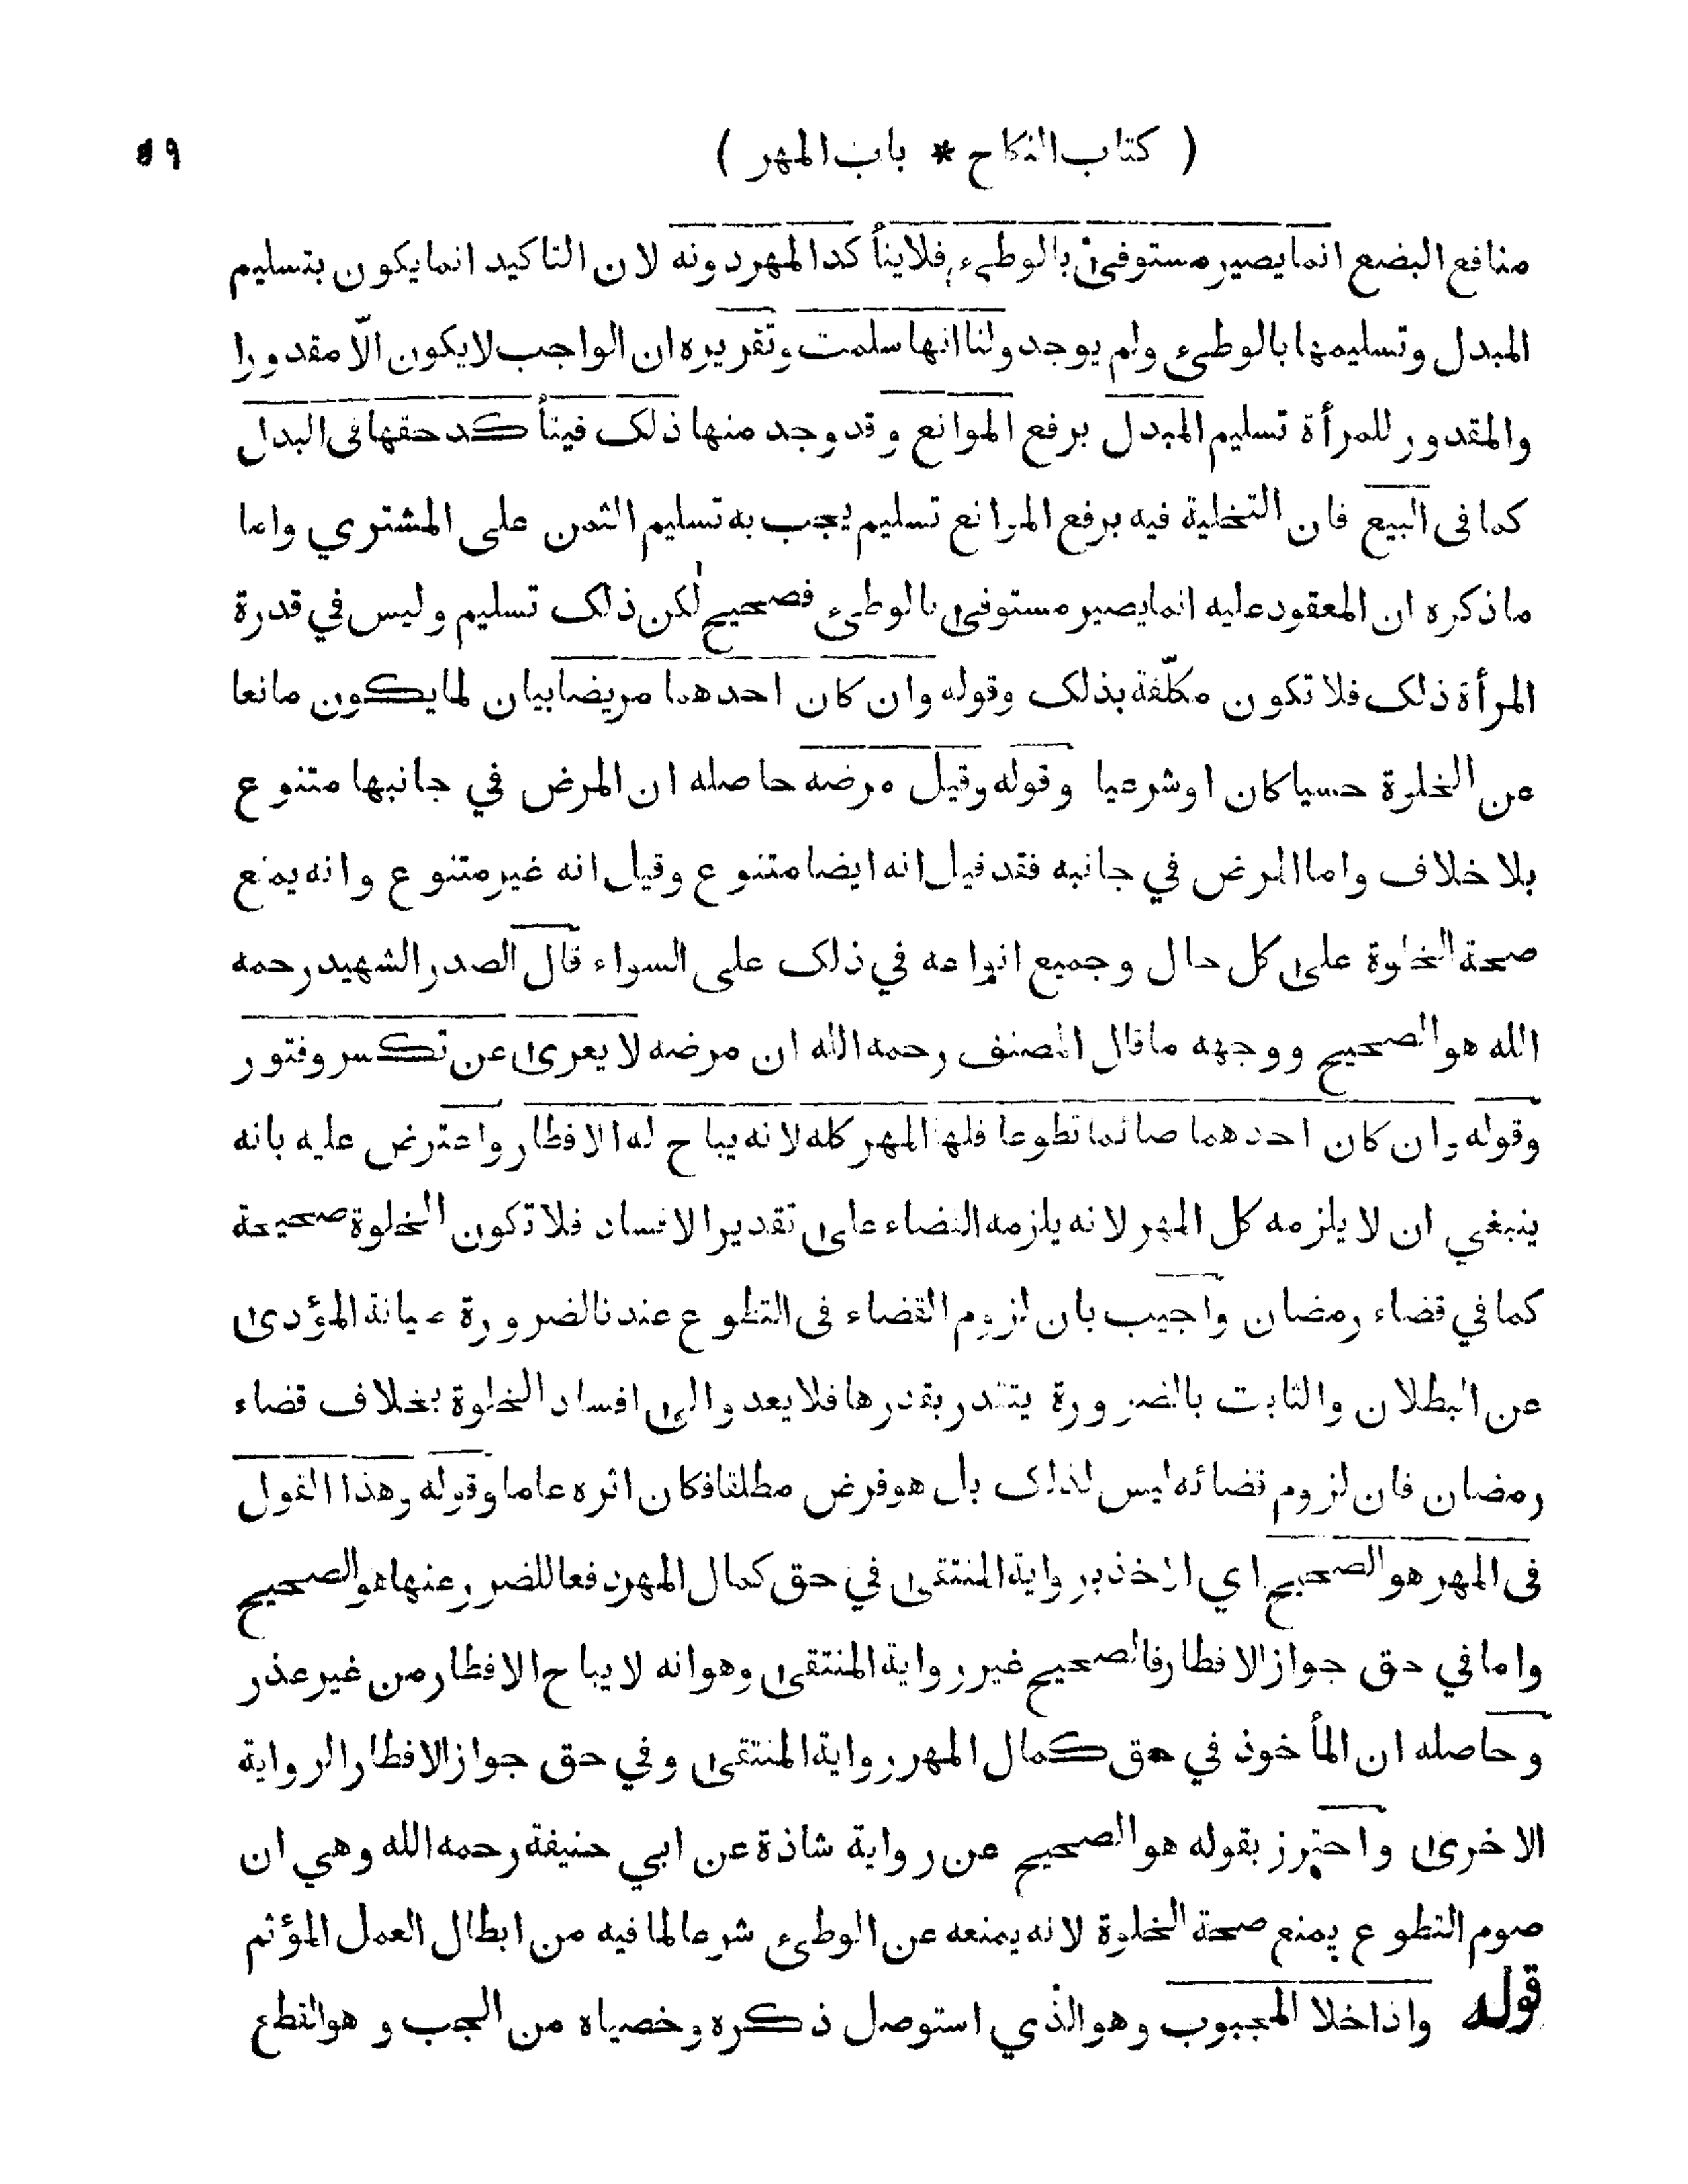 ( كتاب النكاح * باب المهر )
منافع البضع انما يصير مستوفى بالوطىء فلا يتأكد المهر دونه لان التاكيد انما يكون بتسليم
المبدل وتسليمها بالوطىء ولم يوجد ولنا انها سلمت وتقريره ان الواجب لا يكون الّا مقدورا
والمقدور للمرأة تسليم المبدل برفع الموانع وقد وجد منها ذلك فيتأكد حقها فى البدل
كما فى البيع فان التخلية فيه برفع الموانع تسليم يجب به تسليم الثمن على المشتري واما
ما ذكره ان المعقود عليه انما يصير مستوفى بالوطىء فصحيح لكن ذلك تسليم وليس في قدرة
المرأة ذلك فلا تكون مكلّفة بذلك وقوله وان كان احدهما مريضا بيان لما يكون مانعا
عن الخلوة حسيا كان او شرعيا وقوله وقيل مرضه حاصله ان المرض في جانبها متنوع
بلا خلاف واما المرض في جانبه فقد قيل انه ايضا متنوع وقيل انه غير متنوع وانه يمنع
صحة الخلوة على كل حال وجميع انواعه في ذلك على السواء قال الصدر الشهيد رحمه
الله هو الصحيح ووجهه ما قال المصنف رحمه الله ان مرضه لا يعرى عن تكسر وفتور
وقوله وان كان احدهما صائما تطوعا فلها المهر كله لانه يباح له الافطار واعترض عليه بانه
ينبغي ان لا يلزمه كل المهر لانه يلزمه القضاء على تقدير الافساد فلا تكون الخلوة صحيحة
كما في قضاء رمضان واجيب بان لزوم القضاء فى التطوع عندنا لضرورة صيانة المؤدى
عن البطلان والثابت بالضرورة يتقدر بقدرها فلا يعدو الى افساد الخلوة بخلاف قضاء
رمضان فان لزوم قضائه ليس لذلك بل هو فرض مطلقا فكان اثره عاما وقوله وهذا القول
فى المهر هو الصحيح اي الاخذ برواية المنتقى في حق كمال المهر دفعا للضرر عنها هو الصحيح
واما في حق جواز الافطار فالصحيح غير رواية المنتقى وهو انه لا يباح الافطار من غير عذر
وحاصله ان المأخوذ في حق كمال المهر رواية المنتقى وفي حق جواز الافطار الرواية
الاخرى واحترز بقوله هو الصحيح عن رواية شاذة عن ابي حنيفة رحمه الله وهي ان
صوم التطوع يمنع صحة الخلوة لانه يمنعه عن الوطىء شرعا لما فيه من ابطال العمل المؤثم
قوله واذا خلا المجبوب وهو الذي استوصل ذكره وخصياه من الجب وهو القطع